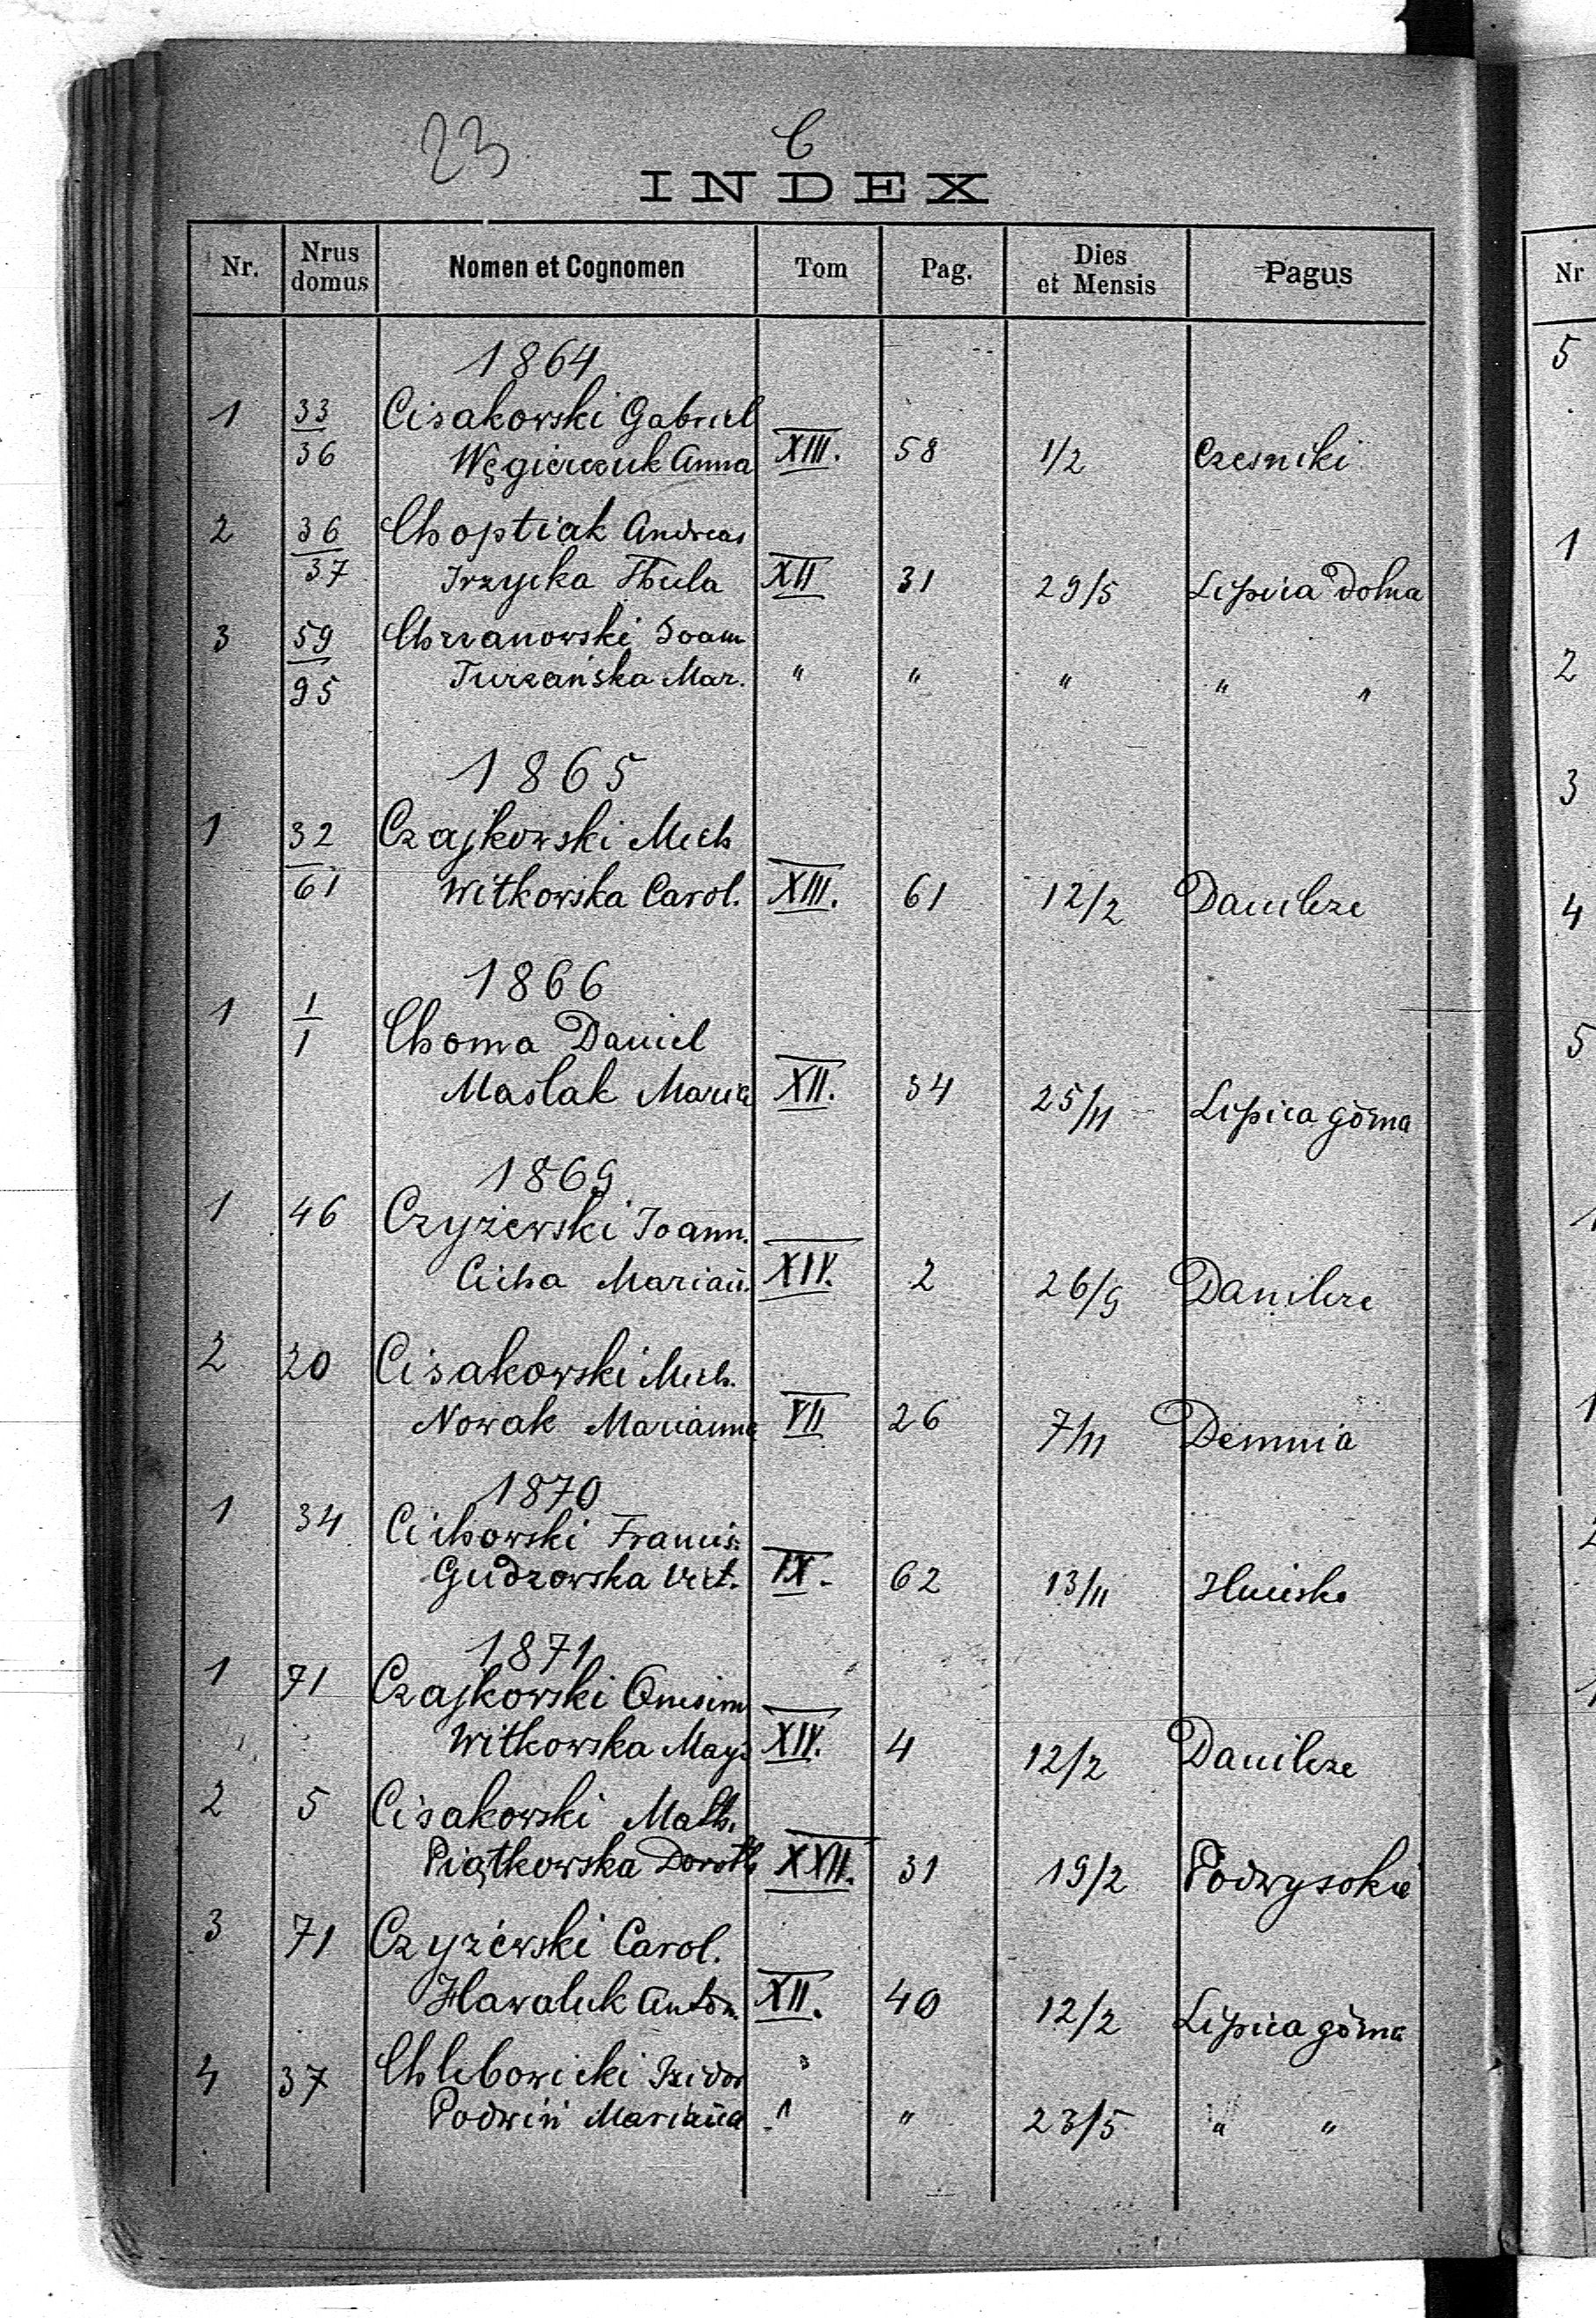 23
C
INDEX
Nr. Nrus domus Nomen et Cognomen Tom Pag. Dies et Mensis Pagus Nr
1864
1 33 Cisakowski Gabriel
36 Węgierczuk Anna XIII. 58 1/2 Czesniki
2 36 Choptiak Andreas
37 Irzycka Thecla XII 31 29/5 Lipica dolna
3 59 Chrzanowski Joann
95 Turzańska Mar. " " " " "
1865
1 32 Czajkowski Mich
61 Witkowska Carol. XIII. 61 12/2 Danilcze
1866
1 1
1 Choma Daniel
Maslak Maria XII. 34 25/11 Lipica górna
1869
1 46 Czyżewski Joann.
Cicha Mariań. XIV. 2 26/9 Danilcze
2 20 Cisakowski Mich.
Nowak Marianna VII 26 7/11 Demnia
1870
1 34 Cichowski Francis.
Gudzowska Vict. IX. 62 13/11 Hucisko
1871
1 71 Czajkowski Onesim
Witkowska Magd XIV. 4 12/2 Danilcze
2 5 Cisakowski Math.
Piątkowska Doroth XXII. 31 19/2 Podwysokie
3 71 Czyżewski Carol.
Hawaluk Anton. XII. 40 12/2 Lipica górna
4 37 Chlebowicki Izidor "
Podwiń Mariańa " " 23/5 " "
5
1
2
3
4
5
1
1
2
1